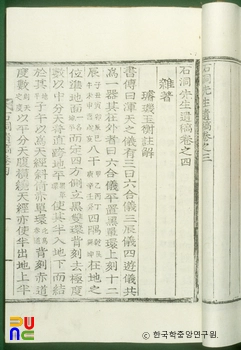 石洞先生遺稿卷之三
石洞先生遺稿卷之四
雜著
璿璣玉衡註解
書傳曰渾天儀有三曰六合儀三辰儀四遊儀共
爲一器其在外者曰六合儀平置黑單環上刻十二
辰 八干 四隅 在地之
位準地面而定四方側立黑雙環背刻去極度
數以中分天脊直跨地平使其半入地下而結
於其子午以爲天經斜倚赤單環 背刻赤道
度數以平分天腹橫繞天經亦使半出地上半
韓國學中央硏究院